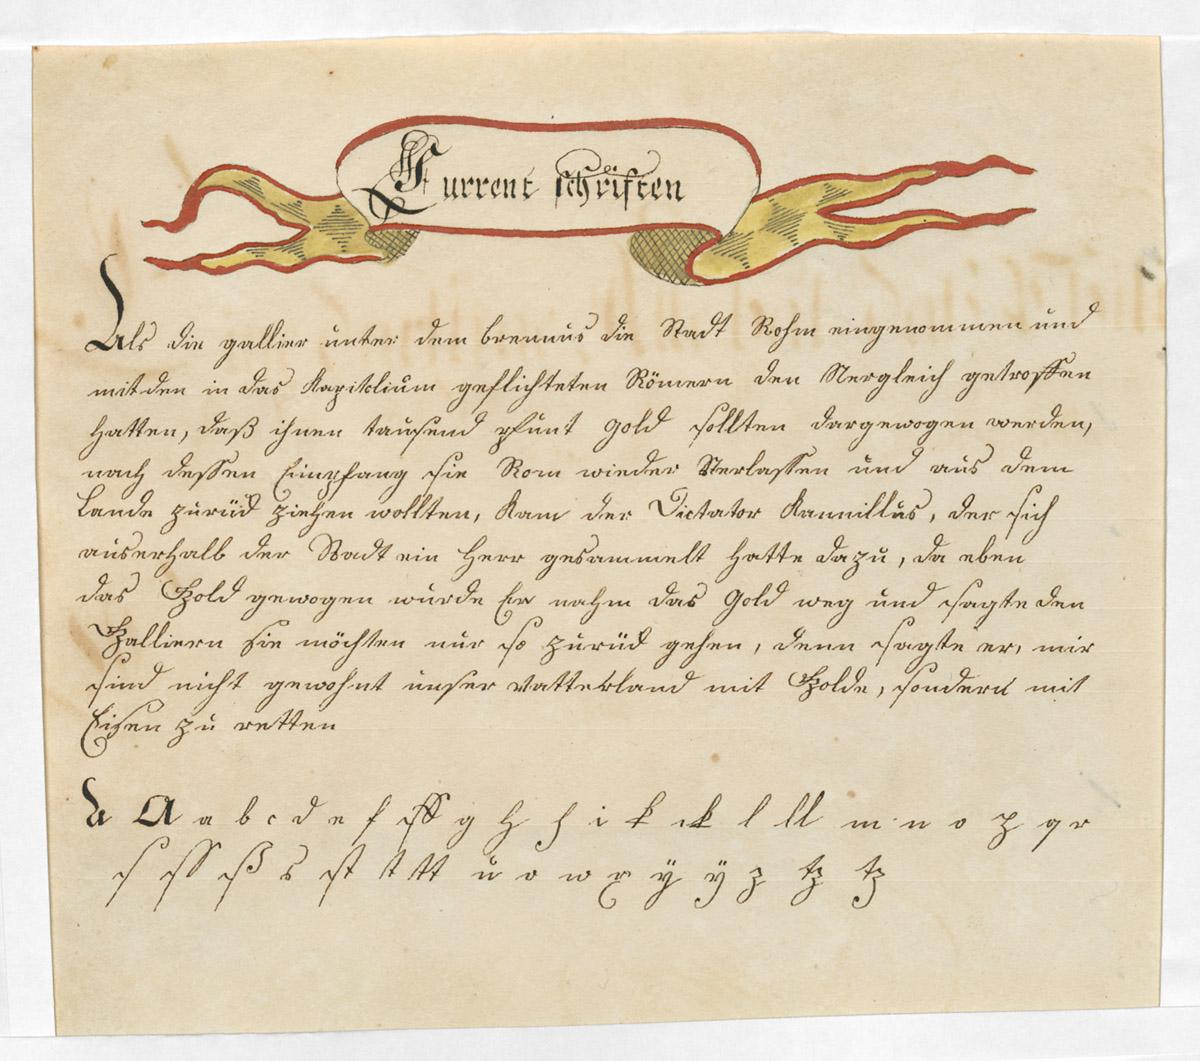 Current schriften
Als die gallier unter dem brennus die Stadt Rohm eingenommen und
mit den in das Kapitolium geflichteten Römern den Vergleich getroffen
hatten, daß ihnen tausend pfunt gold sollten dargewogen werden,
nach dessen Empfang sie Rom wieder Verlassen und aus dem
Lande zurück ziehen wollten, kam der Dictator Kamillus, der sich
auserhalb der Stadt ein Herr gesammelt hatte dazu, da eben
das Gold gewogen wurde Er nahm das Gold weg und sagte den
Galliern sie möchten nur so zurück gehen, denn sagte er, mir
sind nicht gewohnt unser vatterland mit Golde, sondern mit
Eisen zu retten
A A a b c d e f ff g h h i k ck l ll m n o p q r
s ss ß s st t tt u v w x y ÿ z tz tz